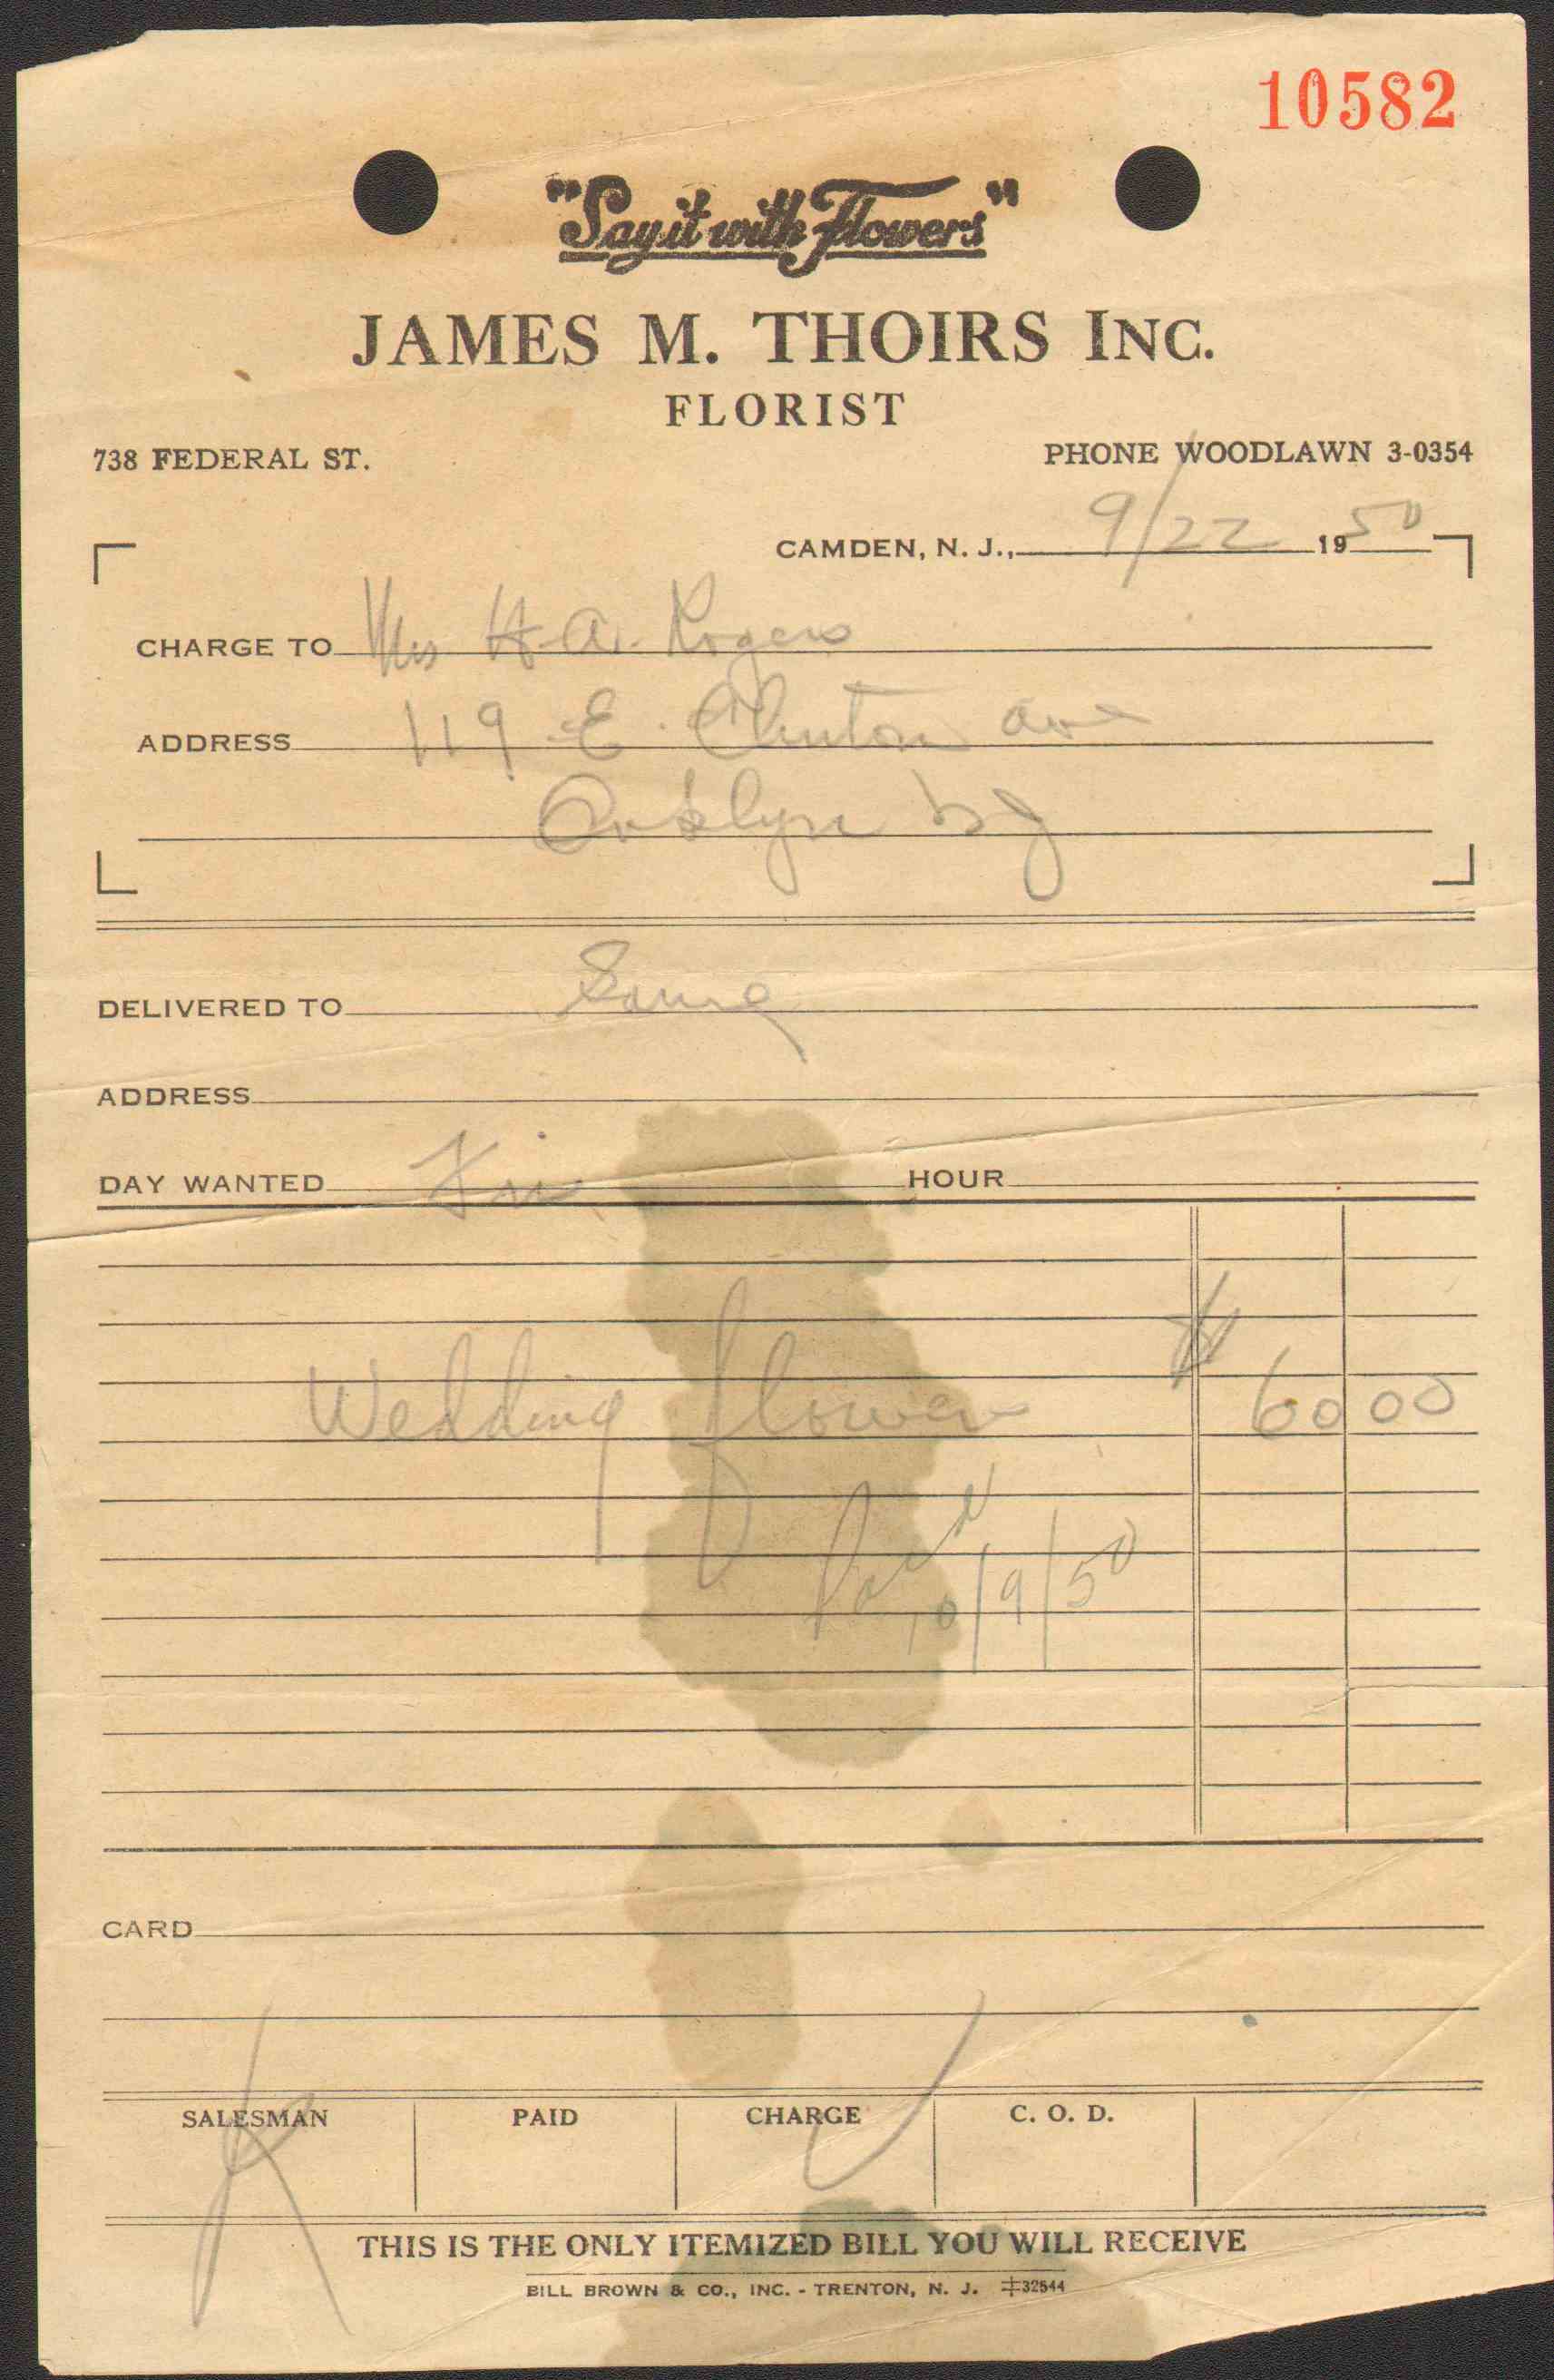 10582
"Say it with Flowers"
JAMES M. THOIRS INC.
FLORIST
738 FEDERAL ST. PHONE WOODLAWN 3-0354
CAMDEN, N. J., 9/22 1950
CHARGE TO Mrs H. A. Rogers
ADDRESS 119 E. Clinton ave
Oaklyn NJ
DELIVERED TO Same
ADDRESS
DAY WANTED Fri HOUR
Wedding flowers $ 60 00
Paid
10/9/50
CARD
SALESMAN PAID CHARGE C. O. D.
THIS IS THE ONLY ITEMIZED BILL YOU WILL RECEIVE
BILL BROWN & CO., INC. - TRENTON, N. J. #32544